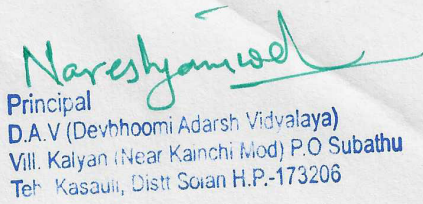 Principal
D.A.V (Devbhoomi Adarsh Vidyalaya)
Vill. Kalyan (Near Kainchi Mod) P.O Subathu
Teh. Kasauli, Distt Solan H.P.-173206